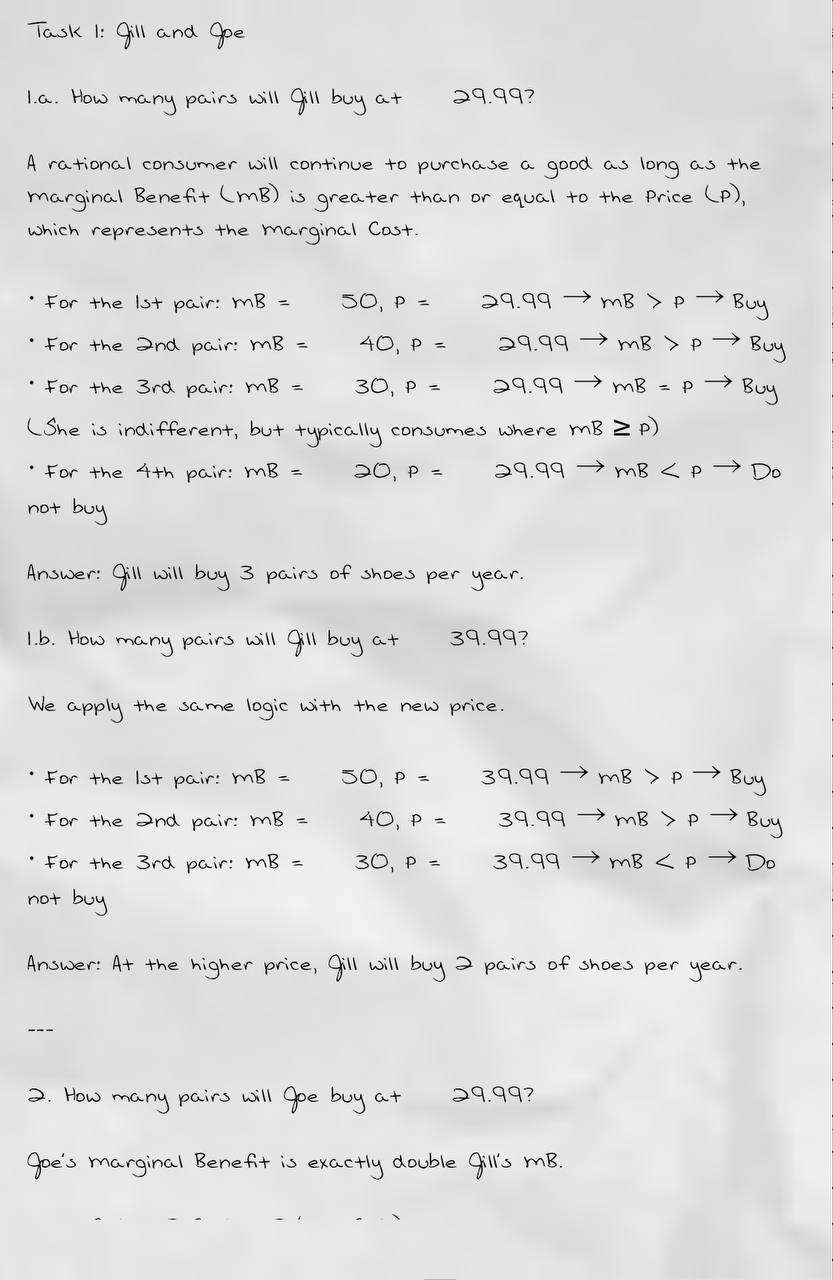 Task 1: Jill and Joe
1.a. How many pairs will Jill buy at 29.99?
A rational consumer will continue to purchase a good as long as the
marginal Benefit (mB) is greater than or equal to the Price (P),
which represents the marginal Cost.
• For the 1st pair: mB = 50, P = 29.99 → mB > P → Buy
• For the 2nd pair: mB = 40, P = 29.99 → mB > P → Buy
• For the 3rd pair: mB = 30, P = 29.99 → mB = P → Buy
(She is indifferent, but typically consumes where mB ≥ P)
• For the 4th pair: mB = 20, P = 29.99 → mB < P → Do
not buy
Answer: Jill will buy 3 pairs of shoes per year.
1.b. How many pairs will Jill buy at 39.99?
We apply the same logic with the new price.
• For the 1st pair: mB = 50, P = 39.99 → mB > P → Buy
• For the 2nd pair: mB = 40, P = 39.99 → mB > P → Buy
• For the 3rd pair: mB = 30, P = 39.99 → mB < P → Do
not buy
Answer: At the higher price, Jill will buy 2 pairs of shoes per year.
---
2. How many pairs will Joe buy at 29.99?
Joe's marginal Benefit is exactly double Jill's mB.